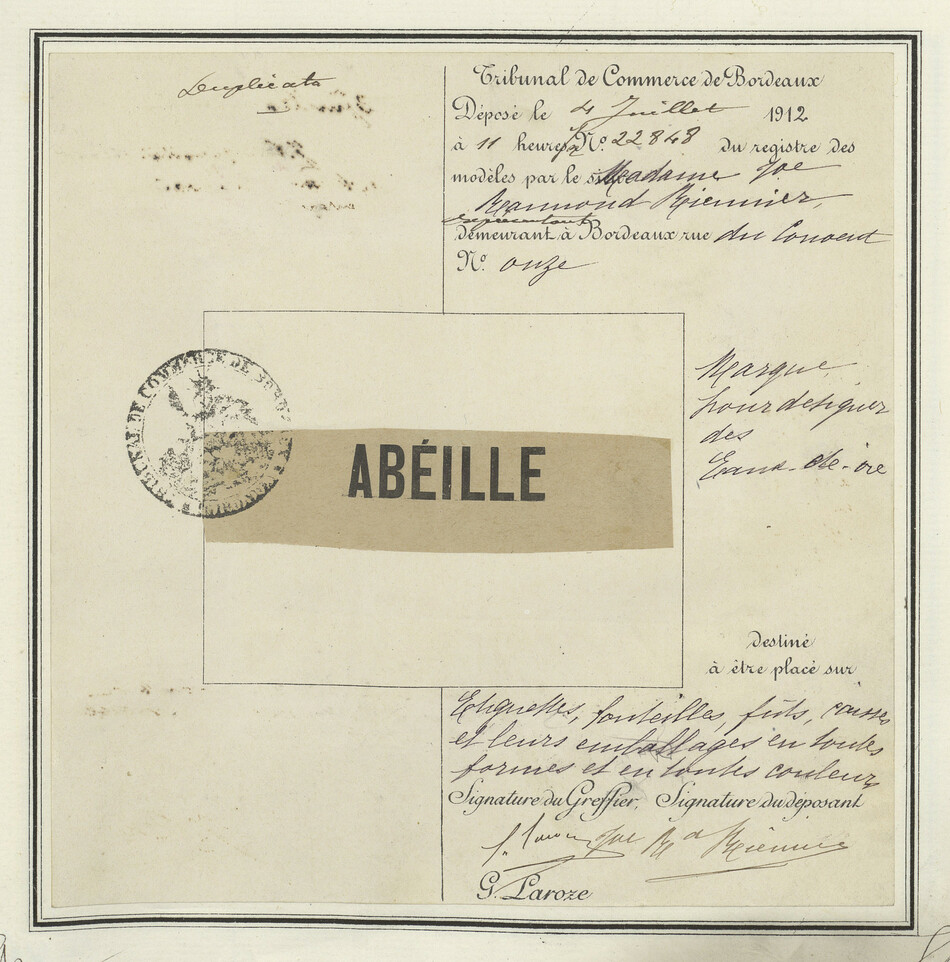 Duplicata
Tribunal de Commerce de Bordeaux
Déposé le 4 Juillet 1912
à 11 heures N° 22848 du registre des
modèles par le Madame Vve
Raymond Riennier,
demeurant à Bordeaux rue du Couvent
N° onze
TRIBUNAL DE COMMERCE DE BORDEAUX
ABÉILLE
Marque
pour désigner
des
Eaux-de-vie
destiné
à être placé sur
Etiquettes, bouteilles, fûts, caisses
et leurs emballages en toutes
formes et en toutes couleurs
Signature du Greffier, Signature du déposant
Vve Rd Riennier
G. Laroze